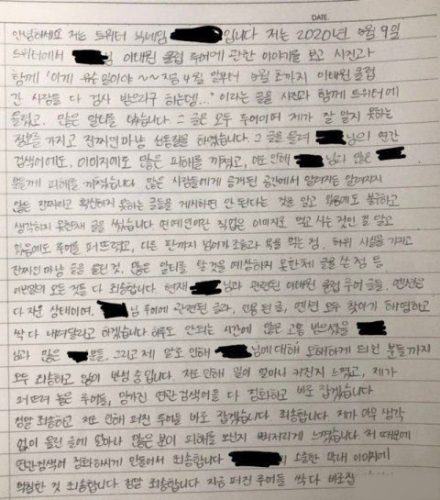 DATE.
안녕하세요 저는 트위터 닉네임 입니다 저는 2020년 5월 9일
트위터에서 님 이태원 클럽 루머에 관한 이야기를 보고 사진과
함께 "이게 무슨 일이야~~ 지금 4월 말부터 5월 초까지 이태원 클럽
간 사람들 다 검사 받으라구 하는데..." 이라는 글을 사진과 함께 트위터에
올렸고, 많은 알티를 탔습니다. 그 글은 모두 루머이며 제가 잘 알지 못하는
정보를 가지고 진짜인 마냥 선동질을 하였습니다. 그 글을 올려 님의 연관
검색어에도, 이미지에도 많은 피해를 끼쳤고, 이로 인해 님과 많은
분들께 피해를 끼쳤습니다. 많은 사람들에게 공개된 공간에서 알려지는
않은 진짜라고 확신하지 못하는 글들을 게시하면 안 된다는 것을 알고 있음에도 불구하고
생각하지 못한 채 글을 썼습니다 연예인이란 직업은 이미지로 먹고 사는 것인 걸 알고
있음에도 루머를 퍼뜨렸고, 다른 팬까지 넘어가 조롱과 욕을 먹는 점, 허위 사실을 가지고
진짜인 마냥 글을 올린 것, 많은 알티를 탈 것을 예상하지 못한 채 글을 쓴 점 등
이 모든 것들 다 죄송합니다 현재 님과 관련된 이태원 클럽 루머 글들, 멘션은
다 지운 상태이며, 님 루머에 관련된 글과, 인용된 글, 멘션 모두 찾아가 해명하고
싹 다 내려달라고 하겠습니다 하루도 안되는 시간에 많은 고통 받으셨을
님과 많은 분들, 그리고 제 말로 인해 님에 대해 오해하게 되신 분들까지
모두 죄송하고 많이 반성 중입니다. 저로 인해 일이 얼마나 커진지 느꼈고, 제가
퍼뜨려 놓은 루머들, 망가진 연관 검색어를 다 정화하고 바로 잡겠습니다
정말 죄송하고 저로 인해 퍼진 루머를 바로 잡겠습니다. 죄송합니다. 제가 아무 생각
없이 올린 글에 얼마나 많은 분이 피해를 보는지 뼈저리게 느꼈습니다. 저 때문에
연관검색어 정화하시게 만들어서 죄송합니다 의 소중한 이미지에
먹칠한 것 죄송합니다 정말 죄송합니다 지금 퍼진 루머들 싹 다 바로잡